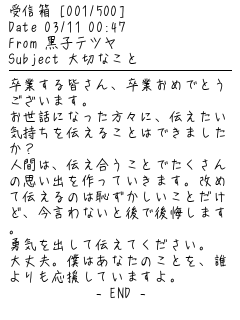 受信箱 [001/500]
Date 03/11 00:47
From 黒子テツヤ
Subject 大切なこと
卒業する皆さん、卒業おめでとう
ございます。
お世話になった方々に、伝えたい
気持ちを伝えることはできました
か?
人間は、伝え合うことでたくさん
の思い出を作っていきます。改め
て伝えるのは恥ずかしいことだけ
ど、今言わないと後で後悔します
。
勇気を出して伝えてください。
大丈夫。僕はあなたのことを、誰
よりも応援していますよ。
- END -